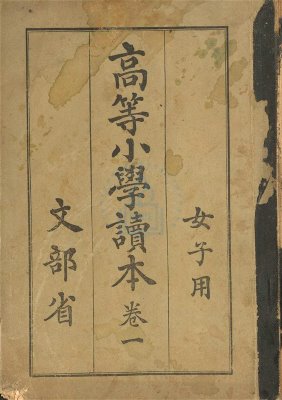 女子用
高等小學讀本 卷一
文部省